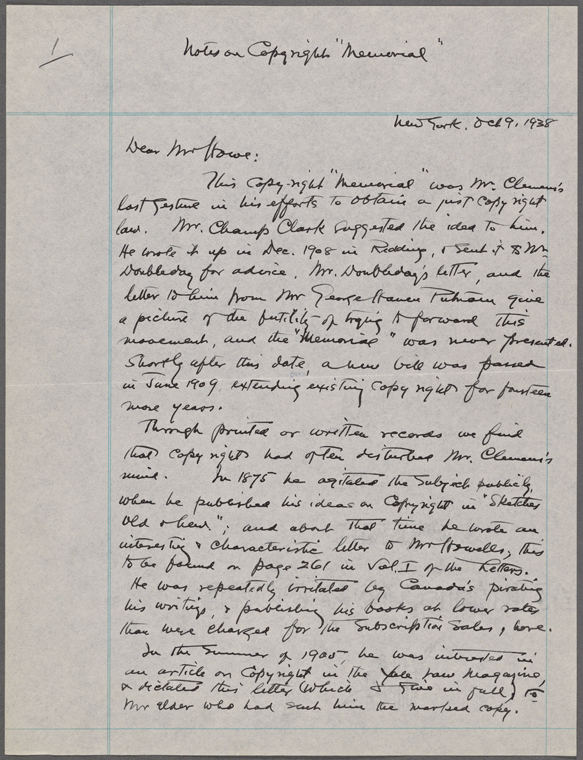 1
Notes on Copyright "Memorial"
New York. Oct 9, 1938
Dear Mr Howe:
This Copyright "Memorial" was Mr. Clemens's
last gesture in his efforts to obtain a just copyright
law. Mr. Champ Clark suggested the idea to him.
He wrote it up in Dec. 1908 in Redding, & sent it to Mr
Doubleday for advice. Mr. Doubleday's letter, and the
letter to him from Mr George Haven Putnam give
a picture of the futility of trying to forward this
movement, and the "Memorial" was never presented.
Shortly after this date, a new bill was passed
in June 1909 extending existing copyrights for fourteen
more years.
Through printed or written records we find
that copyrights had often disturbed Mr. Clemens's
mind. In 1875 he agitated the subject publicly,
when he published his ideas on Copyright in "Sketches
Old & New"; and about that time he wrote an
interesting & characteristic letter to Mr Howells, this
to be found on page 261 in Vol. I of the Letters.
He was repeatedly irritated by Canada's pirating
his writings, & publishing his books at lower rates
than were charged for the Subscription Sales, here.
In the Summer of 1905, he was interested in
an article on Copyright in the Yale Law Magazine,
& dictated this letter (which I give in full) to
Mr Elder who had sent him the marked copy.